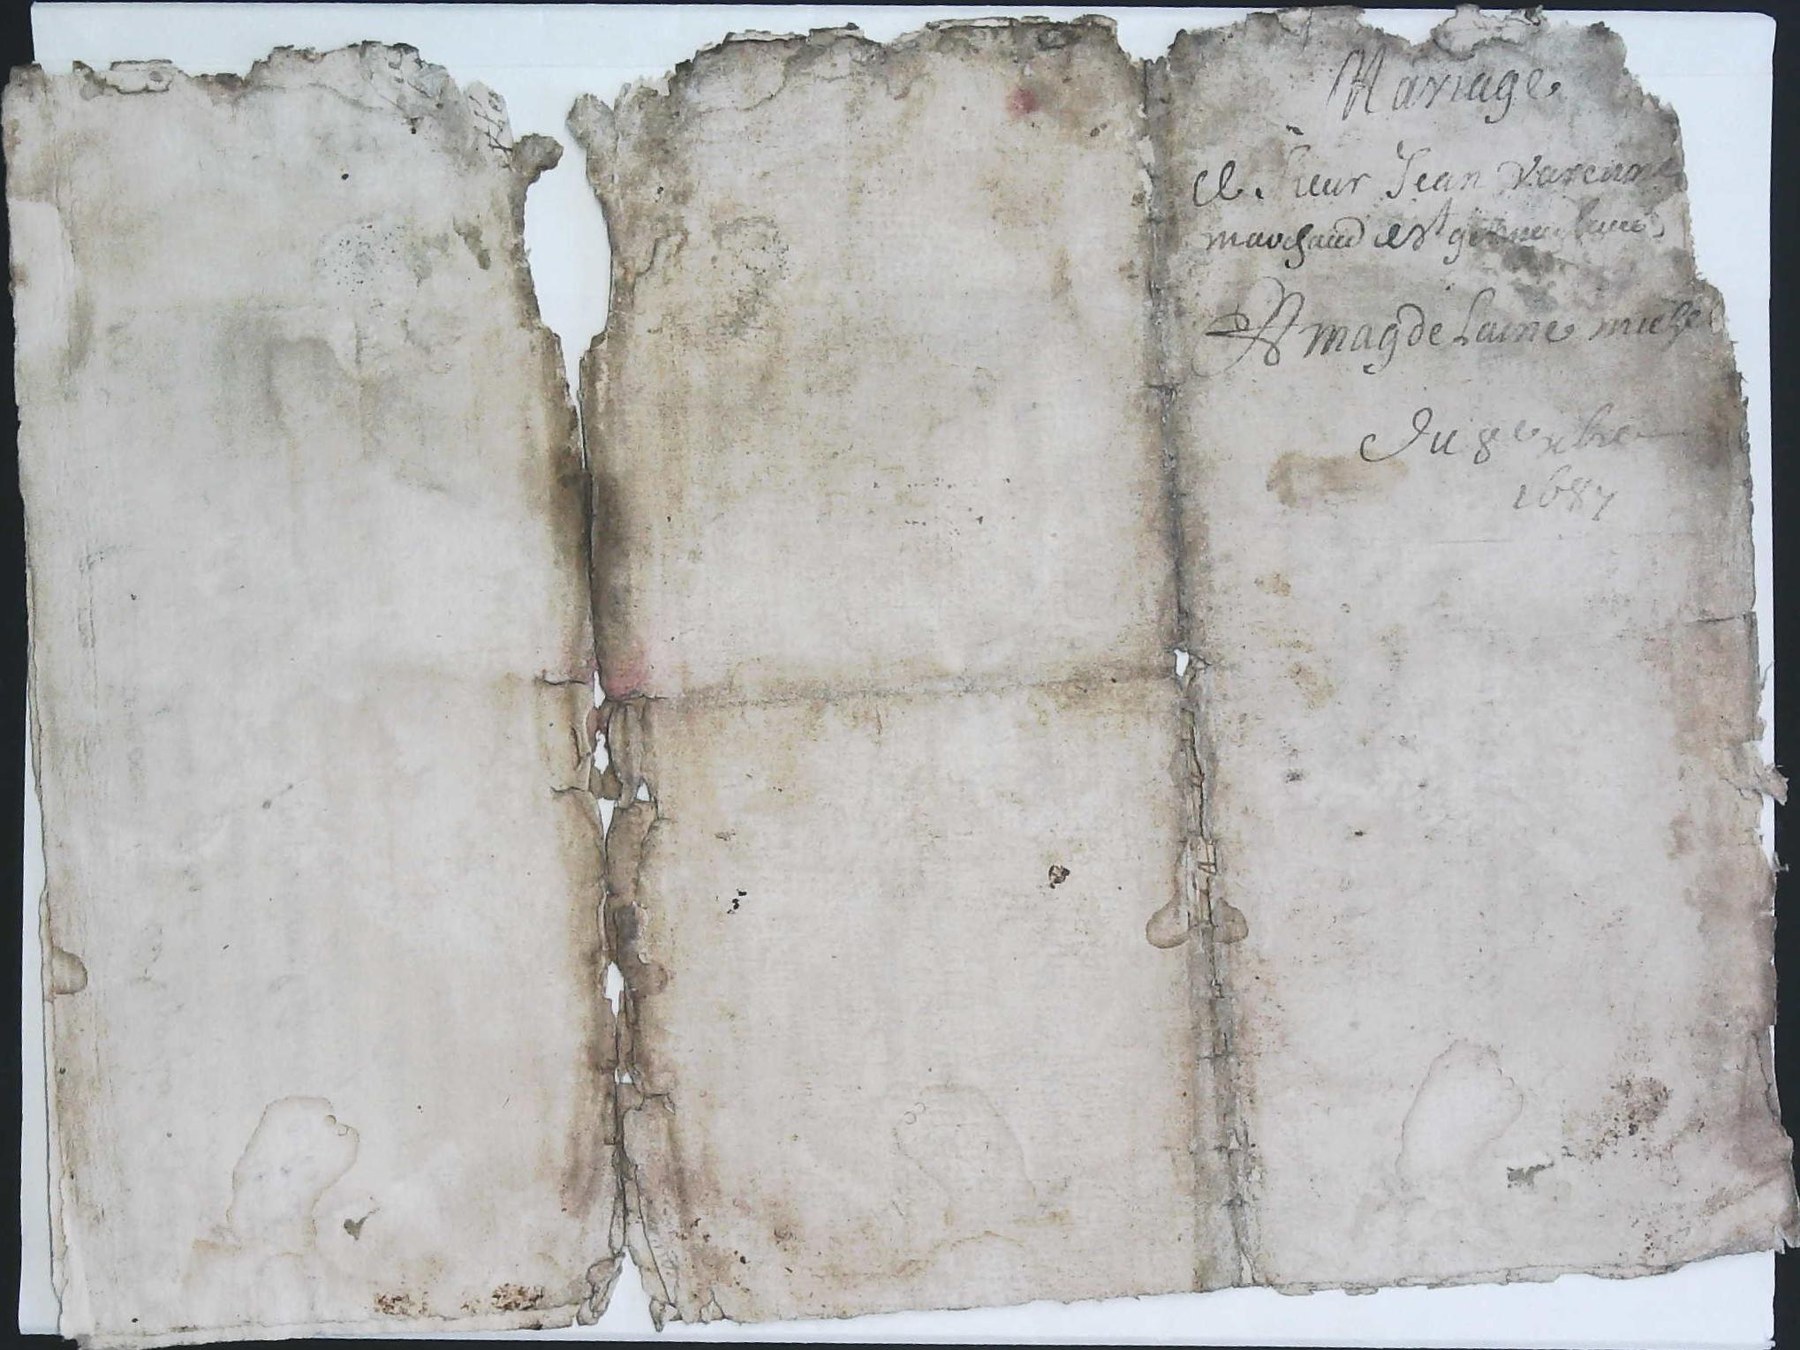 Mariage
de sieur Jean Varenne
marchand et
A magdelaine michel
Du 8e xbre
1687